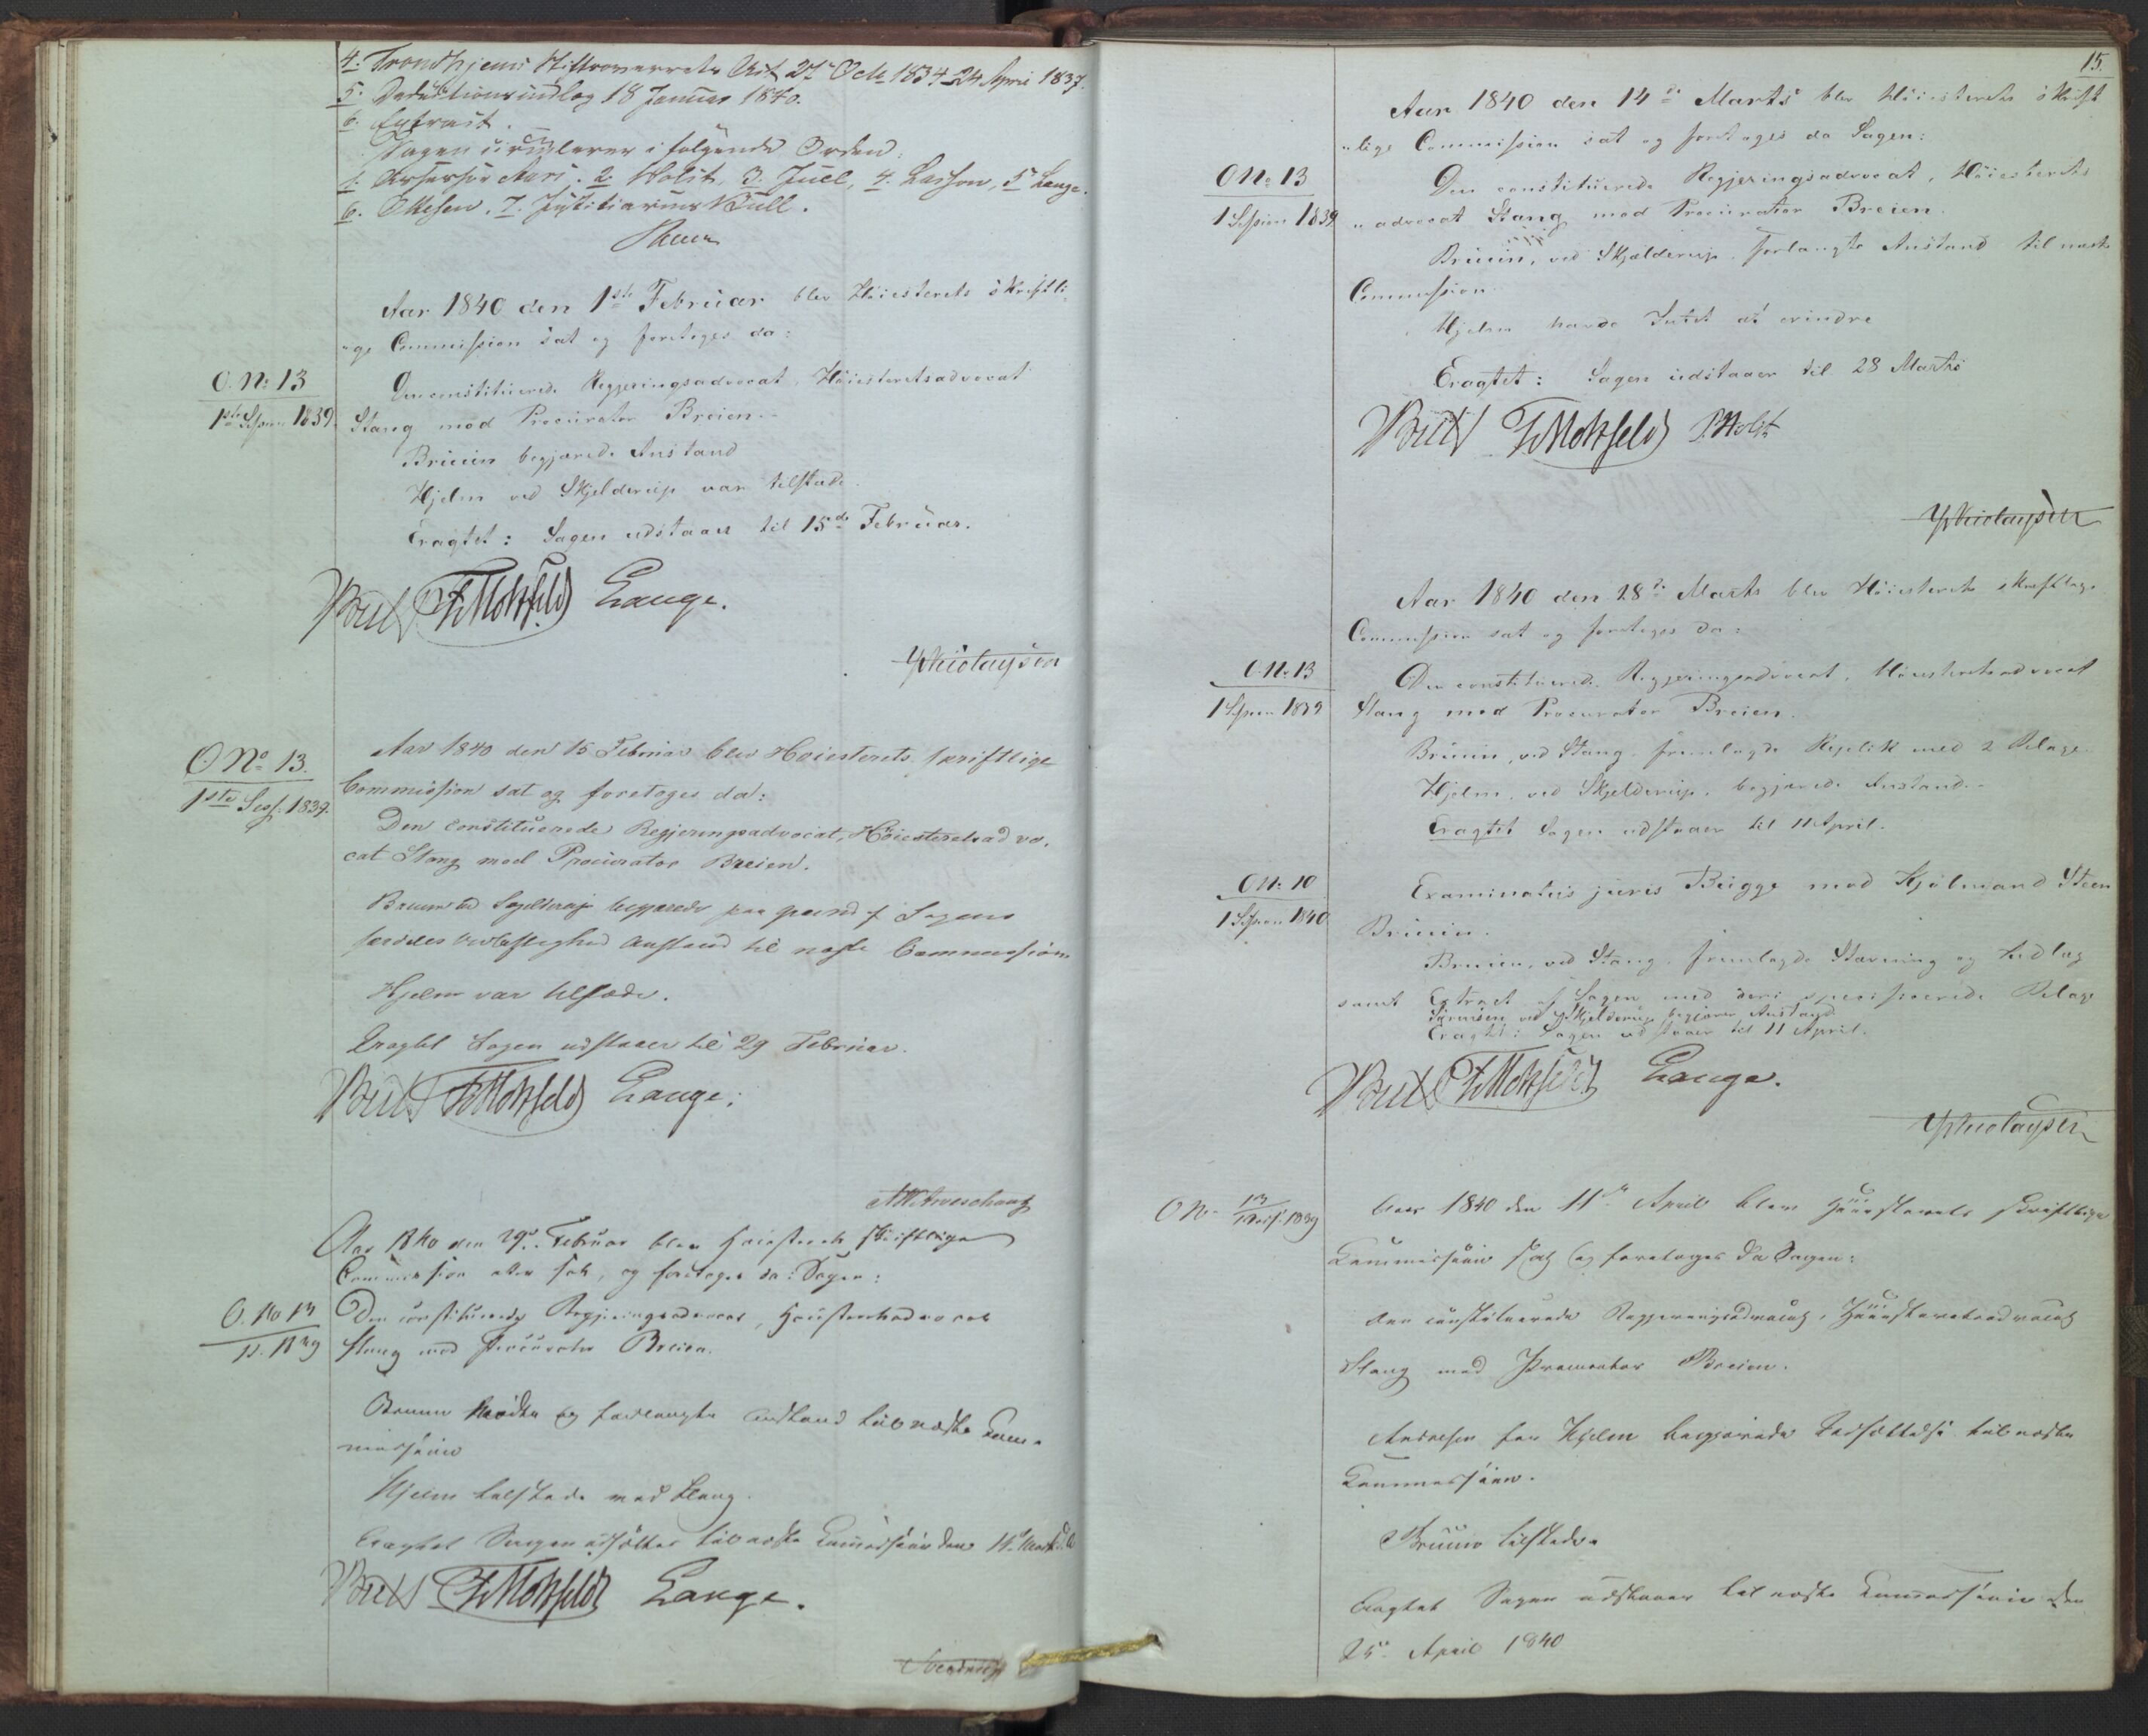 4. Trondhjems Stiftsoverrets Act 27 Octr 1834 - 24 April 1837.
5. Deductionsindlæg 18 Januar 1840.
6. Extract.
Sagen circulerer i følgende Orden:
1. Assessor 2. Holst, 3. Juel, 4. Lasson, 5. Lange.
6. Ottesen. 7. Justitiarius Bull.
Aar 1840 den 1ste Februar blev Høiesterets skriftli-
"ge Commission sat og foretoges da:
O. No 13
1ste Session 1839.
Den constituerede Regjeringsadvocat, Høiesteretsadvocat
Stang mod Procurator Breien.
Bruun begjærede Anstand
Hjelm ved Skjelderup var tilstede.
Eragtet: Sagen udstaaer til 15de Februar.
Bull Motzfeldt Lange.
Nicolaysen
O No 13.
1ste Sess. 1839.
Aar 1840 den 15 Februar blev Høiesterets skriftlige
Commission sat og foretoges da:
Den constituerede Regjeringsadvocat, Høiesteretsadvo-
cat Stang mod Procurator Breien.
Bruun ved Skjelderup begjærede paa Grund af Sagens
særdeles Vidtløftighed Anstand til næste Commission.
Hjelm var tilstede.
Eragtet Sagen udstaaer til 29 Februar.
Bull Motzfeldt Lange.
Aar 1840 den 29de Februar blev Høiesterets skriftlige
Commission atter sat, og foretoges da: Sagen:
O. No 13
1S. 1839
Den constituerede Regjeringsadvocat, Høiesteretsadvocat
Stang mod Procurator Breien.
Bruun mødte og forlangte Anstand til næste Com-
mission
Hjelm tilstede ved Stang.
Eragtet Sagen udsættes til næste Commission den 14 Marts
Bull Motzfeldt Lange.
15.
Aar 1840 den 14de Marts blev Høiesterets skrift
"lige Commission sat og foretoges da Sagen:
O No 13
1 Session 1839
Den constituerede Regjeringsadvocat, Høiesterets
"advocat Stang mod Procurator Breien.
Bruun, ved Skjelderup, forlangte Anstand til næste
Commission.
Hjelm havde Intet at erindre
Eragtet: Sagen udstaaer til 28 Marts
Bull Motzfeldt P. Holst
Nicolaysen
Aar 1840 den 28de Marts blev Høiesterets skriftlige
Commission sat og foretoges da:
O No 13
1 Session 1839
Den constituerede Regjeringsadvocat, Høiesteretsadvocat
Stang mod Procurator Breien.
Bruun, ved Stang, fremlagde Replik med 2 Bilage.
Hjelm, ved Skjelderup, begjærede Anstand.
Eragtet Sagen udstaaer til 11 April.
O No 10
1 Session 1840
Examinatus juris Bugge mod Kjøbmand Steen
Bruun.
Bruun, ved Stang, fremlagde Stævning og Indlæg
samt Extract af Sagen med deri specificerede Bilage
Sørensen ved Skjelderup begjærer Anstand
Eragtet: Sagen udstaaer til 11 April.
Bull Motzfeldt Lange.
Nicolaysen
O No 13
1 Sess. 1839
Aar 1840 den 11te April blev Høiesterets skriftlige
Kommission sat og foretoges da Sagen:
den constituerede Regjeringsadvocat, Høiesteretsadvocat
Stang mod Procurator Breien.
Andresen for Hjelm begjærede Udsættelse til næste
Kommission.
Bruun tilstede
Eragtet Sagen udstaaer til næste Commission den
25 April 1840